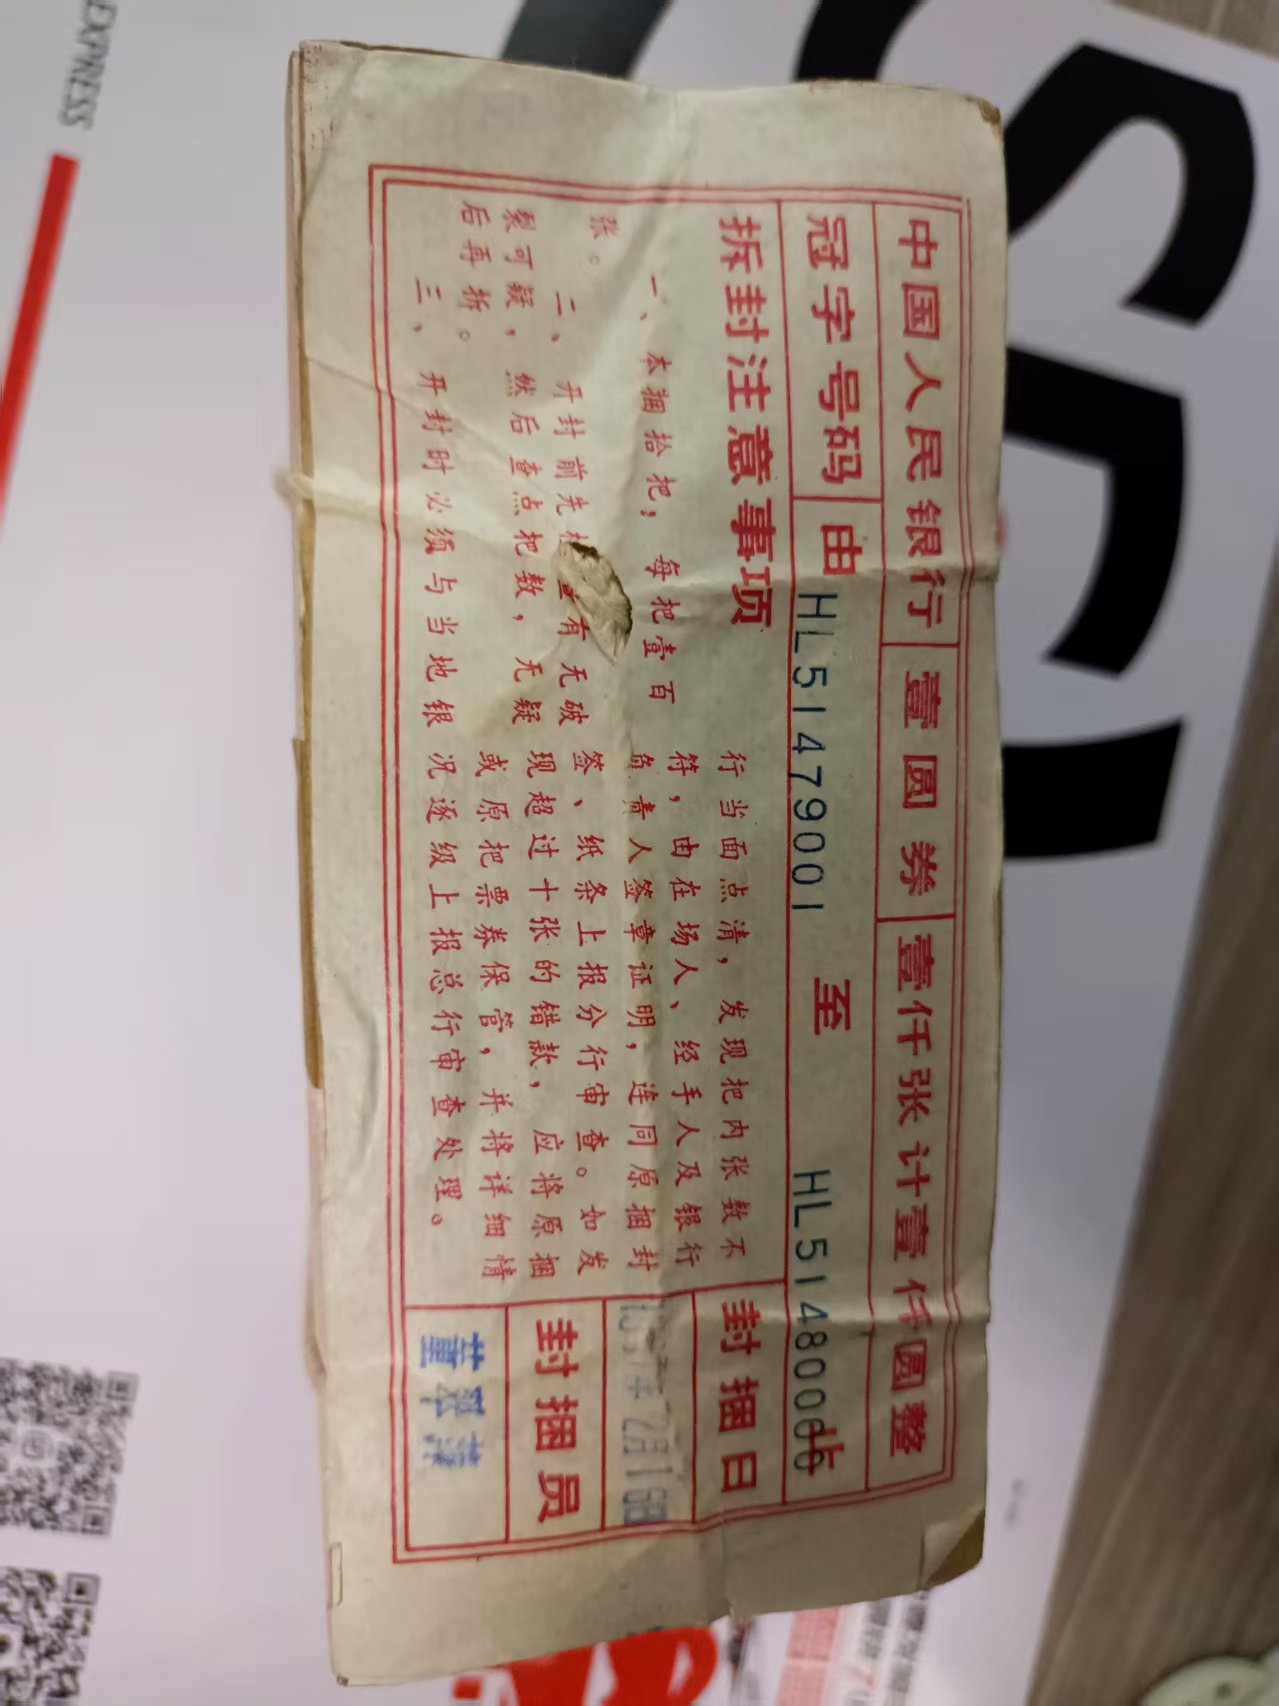 中国人民银行 壹圆券 壹仟张计壹仟圆整
冠字号码 由 HL51479001 至 HL51480000 止
拆封注意事项
一、本捆拾把，每把壹百
张。
二、开封前先检查有无破
裂可疑，然后查点把数，无疑
后再拆。
三、开封时必须与当地银
行当面点清，发现把内张数不
符，由在场人、经手人及银行
负责人签章证明，连同原捆封
签、纸条上报分行审查。如发
现超过十张的错款，应将原捆
或原把票券保管，并将详细情
况逐级上报总行审查处理。
封捆日
2月16日
封捆员
董
EXPRESS